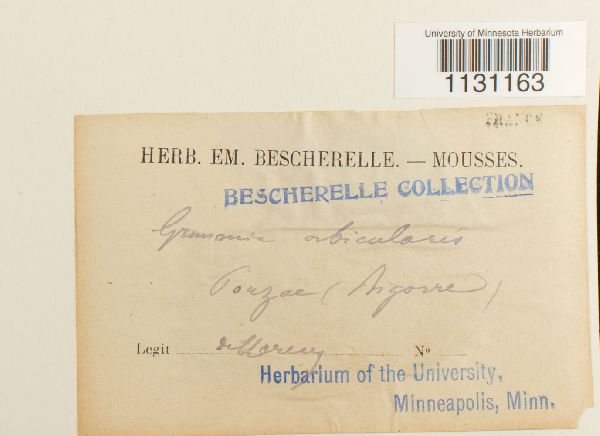 University of Minnesota Herbarium
1131163
FRANCE
HERB. EM. BESCHERELLE. — MOUSSES.
BESCHERELLE COLLECTION
Grimmia orbicularis
Pouzac (Bigorre)
Legit Nº
Herbarium of the University,
Minneapolis, Minn.